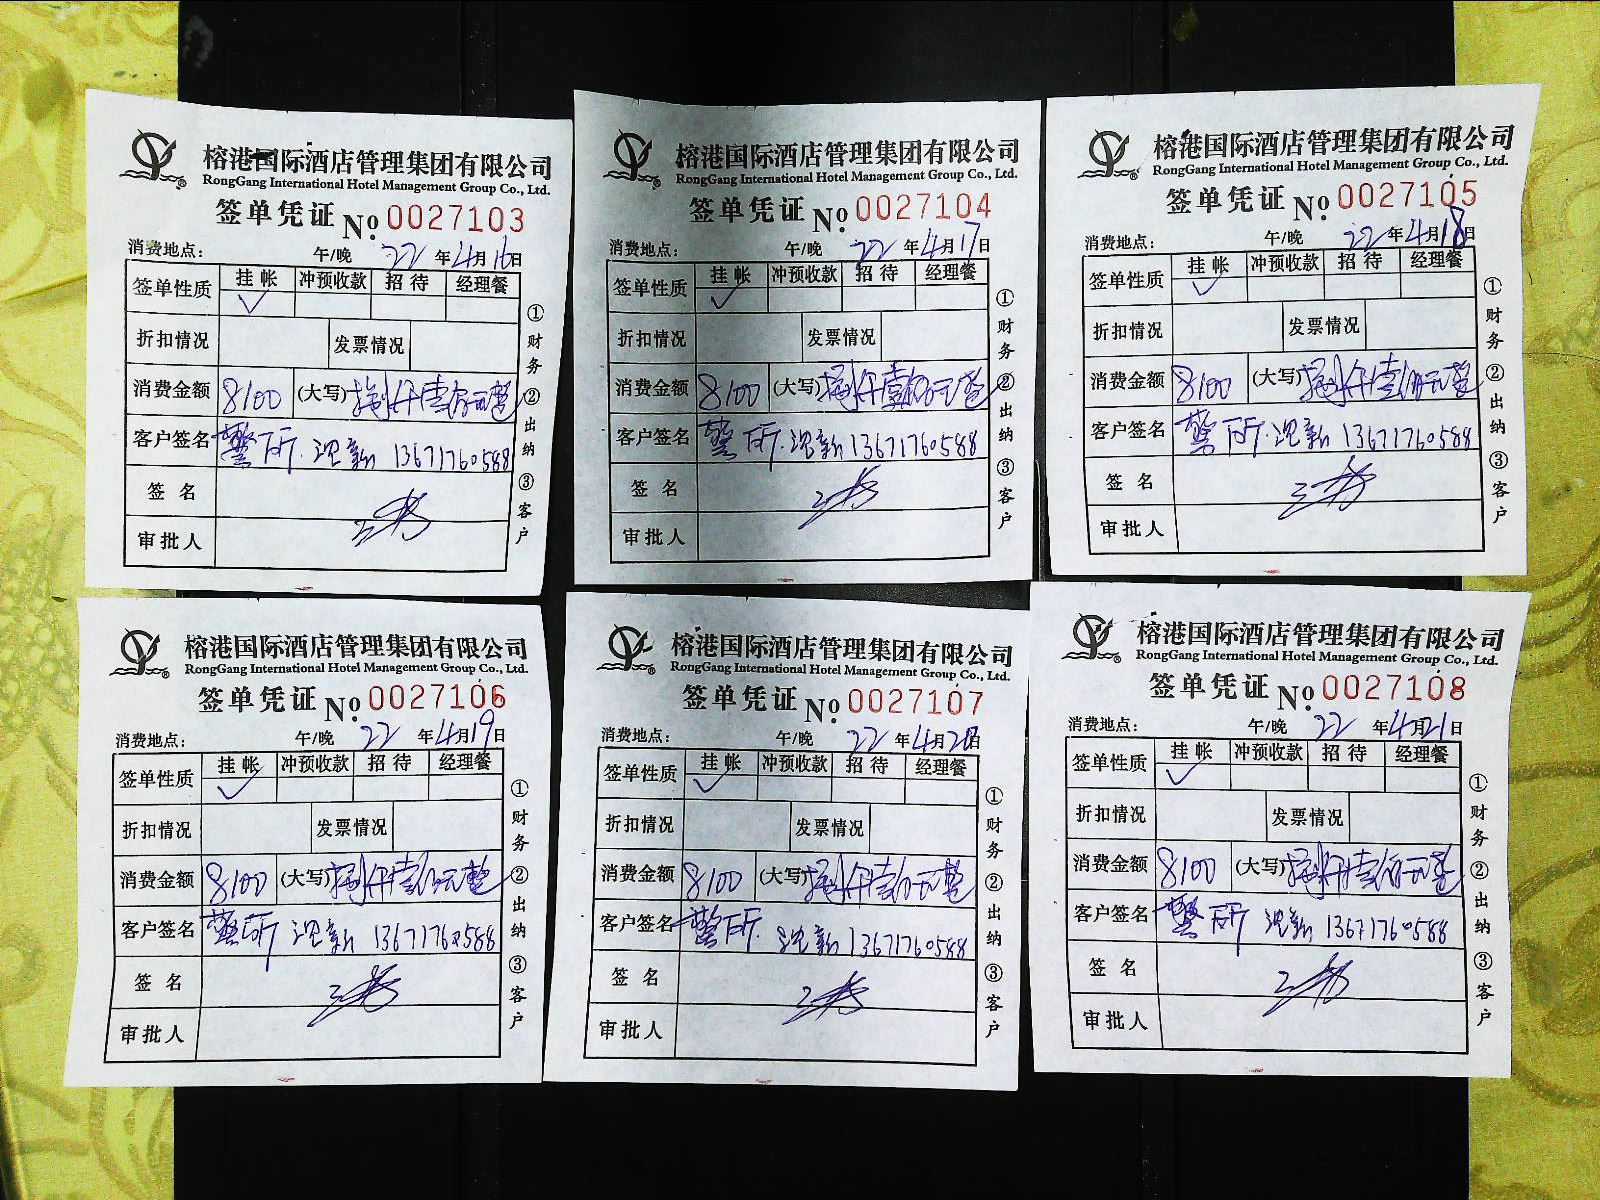 榕港国际酒店管理集团有限公司
RongGang International Hotel Management Group Co., Ltd.
签单凭证 No. 0027103
消费地点： 午/晚 22年4月16日
签单性质 挂帐 冲预收款 招待 经理餐
✓
折扣情况 发票情况
消费金额 8100 (大写) 捌仟壹佰元整
客户签名 警所 沈新 13671760588
签名
审批人
①财务 ②出纳 ③客户
榕港国际酒店管理集团有限公司
RongGang International Hotel Management Group Co., Ltd.
签单凭证 No. 0027104
消费地点： 午/晚 22年4月17日
签单性质 挂帐 冲预收款 招待 经理餐
✓
折扣情况 发票情况
消费金额 8100 (大写) 捌仟壹佰元整
客户签名 警所 沈新 13671760588
签名
审批人
①财务 ②出纳 ③客户
榕港国际酒店管理集团有限公司
RongGang International Hotel Management Group Co., Ltd.
签单凭证 No. 0027105
消费地点： 午/晚 22年4月18日
签单性质 挂帐 冲预收款 招待 经理餐
✓
折扣情况 发票情况
消费金额 8100 (大写) 捌仟壹佰元整
客户签名 警所 沈新 13671760588
签名
审批人
①财务 ②出纳 ③客户
榕港国际酒店管理集团有限公司
RongGang International Hotel Management Group Co., Ltd.
签单凭证 No. 0027106
消费地点： 午/晚 22年4月19日
签单性质 挂帐 冲预收款 招待 经理餐
✓
折扣情况 发票情况
消费金额 8100 (大写) 捌仟壹佰元整
客户签名 警所 沈新 13671760588
签名
审批人
①财务 ②出纳 ③客户
榕港国际酒店管理集团有限公司
RongGang International Hotel Management Group Co., Ltd.
签单凭证 No. 0027107
消费地点： 午/晚 22年4月20日
签单性质 挂帐 冲预收款 招待 经理餐
✓
折扣情况 发票情况
消费金额 8100 (大写) 捌仟壹佰元整
客户签名 警所 沈新 13671760588
签名
审批人
①财务 ②出纳 ③客户
榕港国际酒店管理集团有限公司
RongGang International Hotel Management Group Co., Ltd.
签单凭证 No. 0027108
消费地点： 午/晚 22年4月21日
签单性质 挂帐 冲预收款 招待 经理餐
✓
折扣情况 发票情况
消费金额 8100 (大写) 捌仟壹佰元整
客户签名 警所 沈新 13671760588
签名
审批人
①财务 ②出纳 ③客户